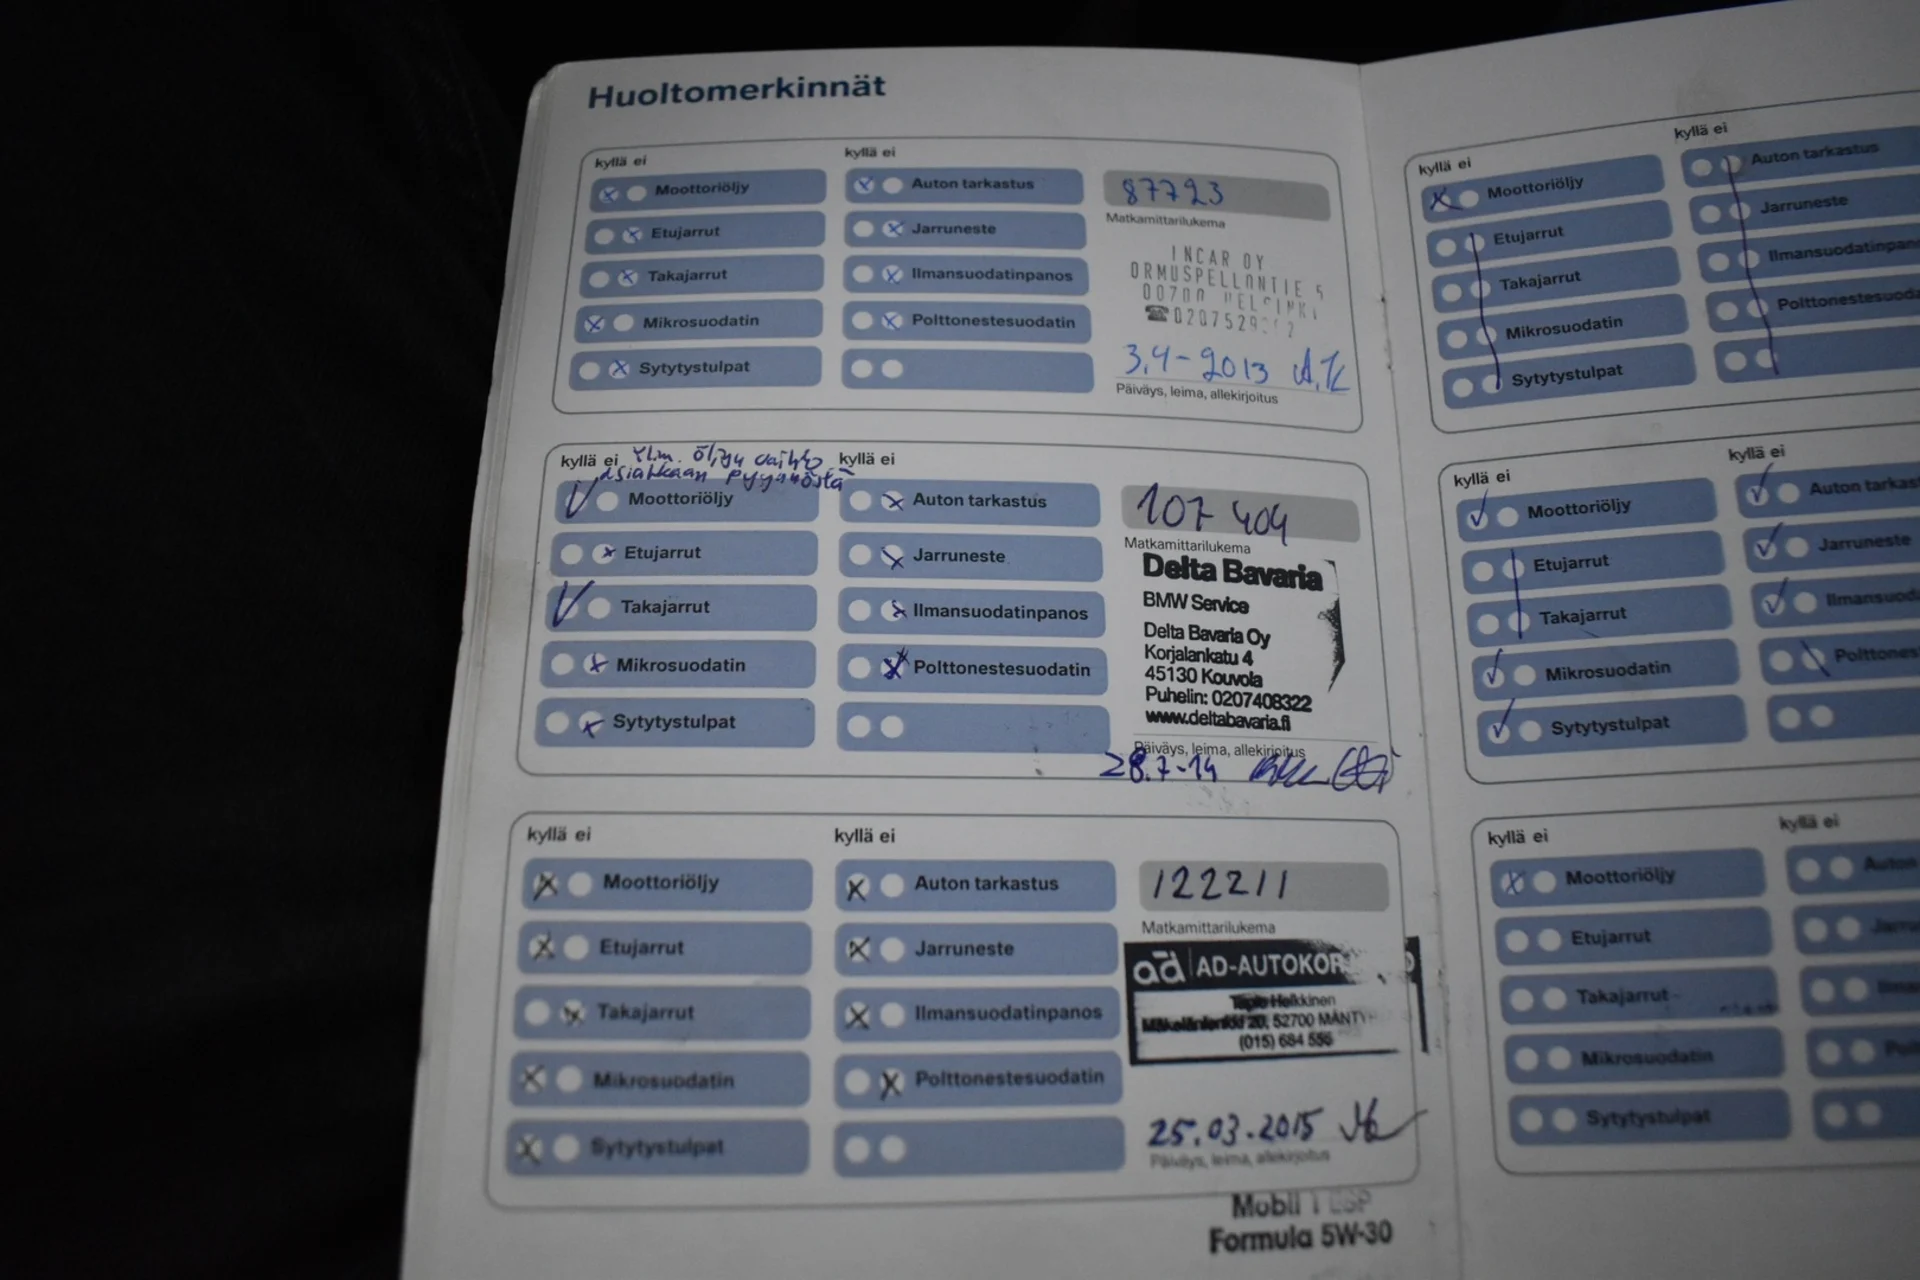 Huoltomerkinnät
kyllä ei
kyllä ei
Moottoriöljy
Auton tarkastus
87723
Etujarrut
Jarruneste
Matkamittarilukema
Takajarrut
Ilmansuodatinpanos
INCAR OY
ORMUSPELLONTIE 5
Mikrosuodatin
Polttonestesuodatin
00700 HELSINKI
Sytytystulpat
3.4-2013
Päiväys, leima, allekirjoitus
kyllä ei
Ylm. öljyn vaihto
kyllä ei
asiakkaan pyynnöstä
Moottoriöljy
Auton tarkastus
107 404
Etujarrut
Jarruneste
Matkamittarilukema
Delta Bavaria
BMW Service
Takajarrut
Ilmansuodatinpanos
Delta Bavaria Oy
Korjalankatu 4
Mikrosuodatin
Polttonestesuodatin
45130 Kouvola
Puhelin: 0207408322
Sytytystulpat
www.deltabavaria.fi
Päiväys, leima, allekirjoitus
28.7-14
kyllä ei
kyllä ei
Moottoriöljy
Auton tarkastus
122211
Etujarrut
Jarruneste
Matkamittarilukema
ad AD-AUTOKOR
Takajarrut
Ilmansuodatinpanos
Heikkinen
52700 MÄNTY
(015) 684 556
Mikrosuodatin
Polttonestesuodatin
Sytytystulpat
25.03.2015
Päiväys, leima, allekirjoitus
Mobil 1 ESP
Formula 5W-30
kyllä ei
kyllä ei
Moottoriöljy
Auton tarkastus
Etujarrut
Jarruneste
Takajarrut
Ilmansuodatinpan
Mikrosuodatin
Polttonestesuoda
Sytytystulpat
kyllä ei
kyllä ei
Moottoriöljy
Auton tarkas
Etujarrut
Jarruneste
Takajarrut
Ilmansuod
Mikrosuodatin
Polttones
Sytytystulpat
kyllä ei
kyllä ei
Moottoriöljy
Auton
Etujarrut
Jarru
Takajarrut
Ilma
Mikrosuodatin
Pol
Sytytystulpat